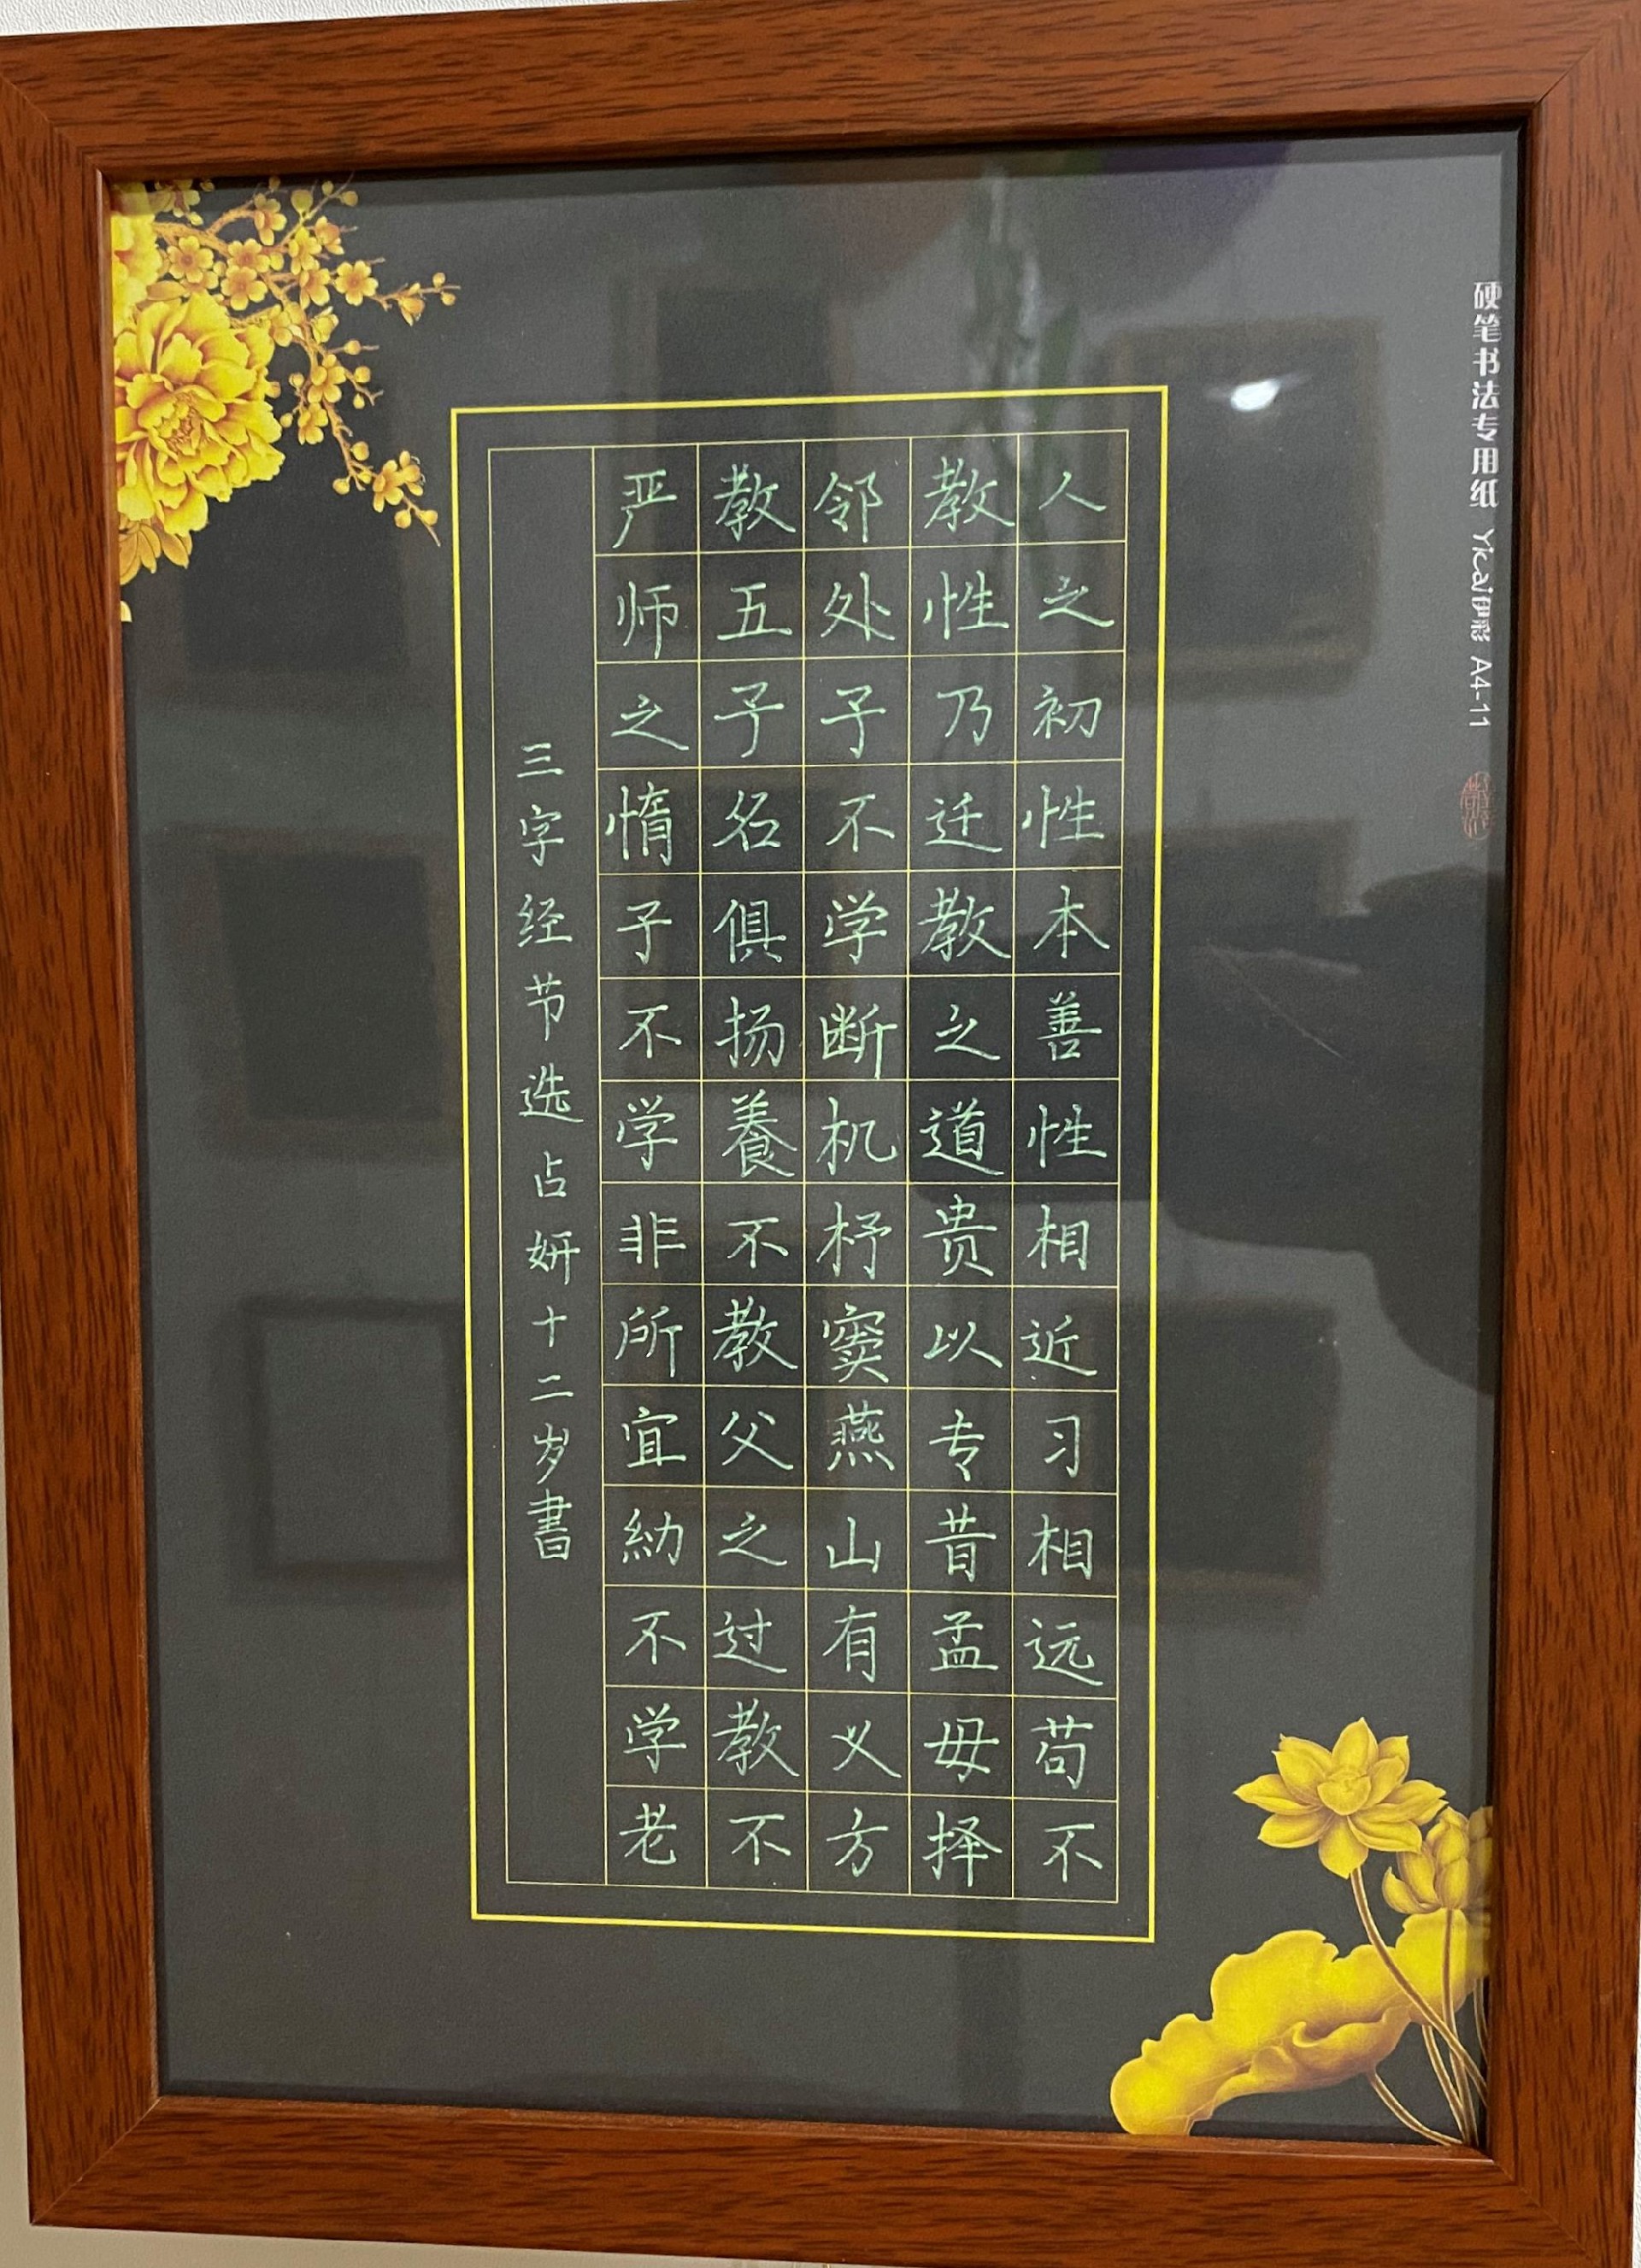 人之初性本善性相近习相远苟不
教性乃迁教之道贵以专昔孟母择
邻处子不学断机杼窦燕山有义方
教五子名俱扬養不教父之过教不
严师之惰子不学非所宜幼不学老
三字经节选占妍十二岁書
硬笔书法专用纸 Yicai伊彩 A4-11